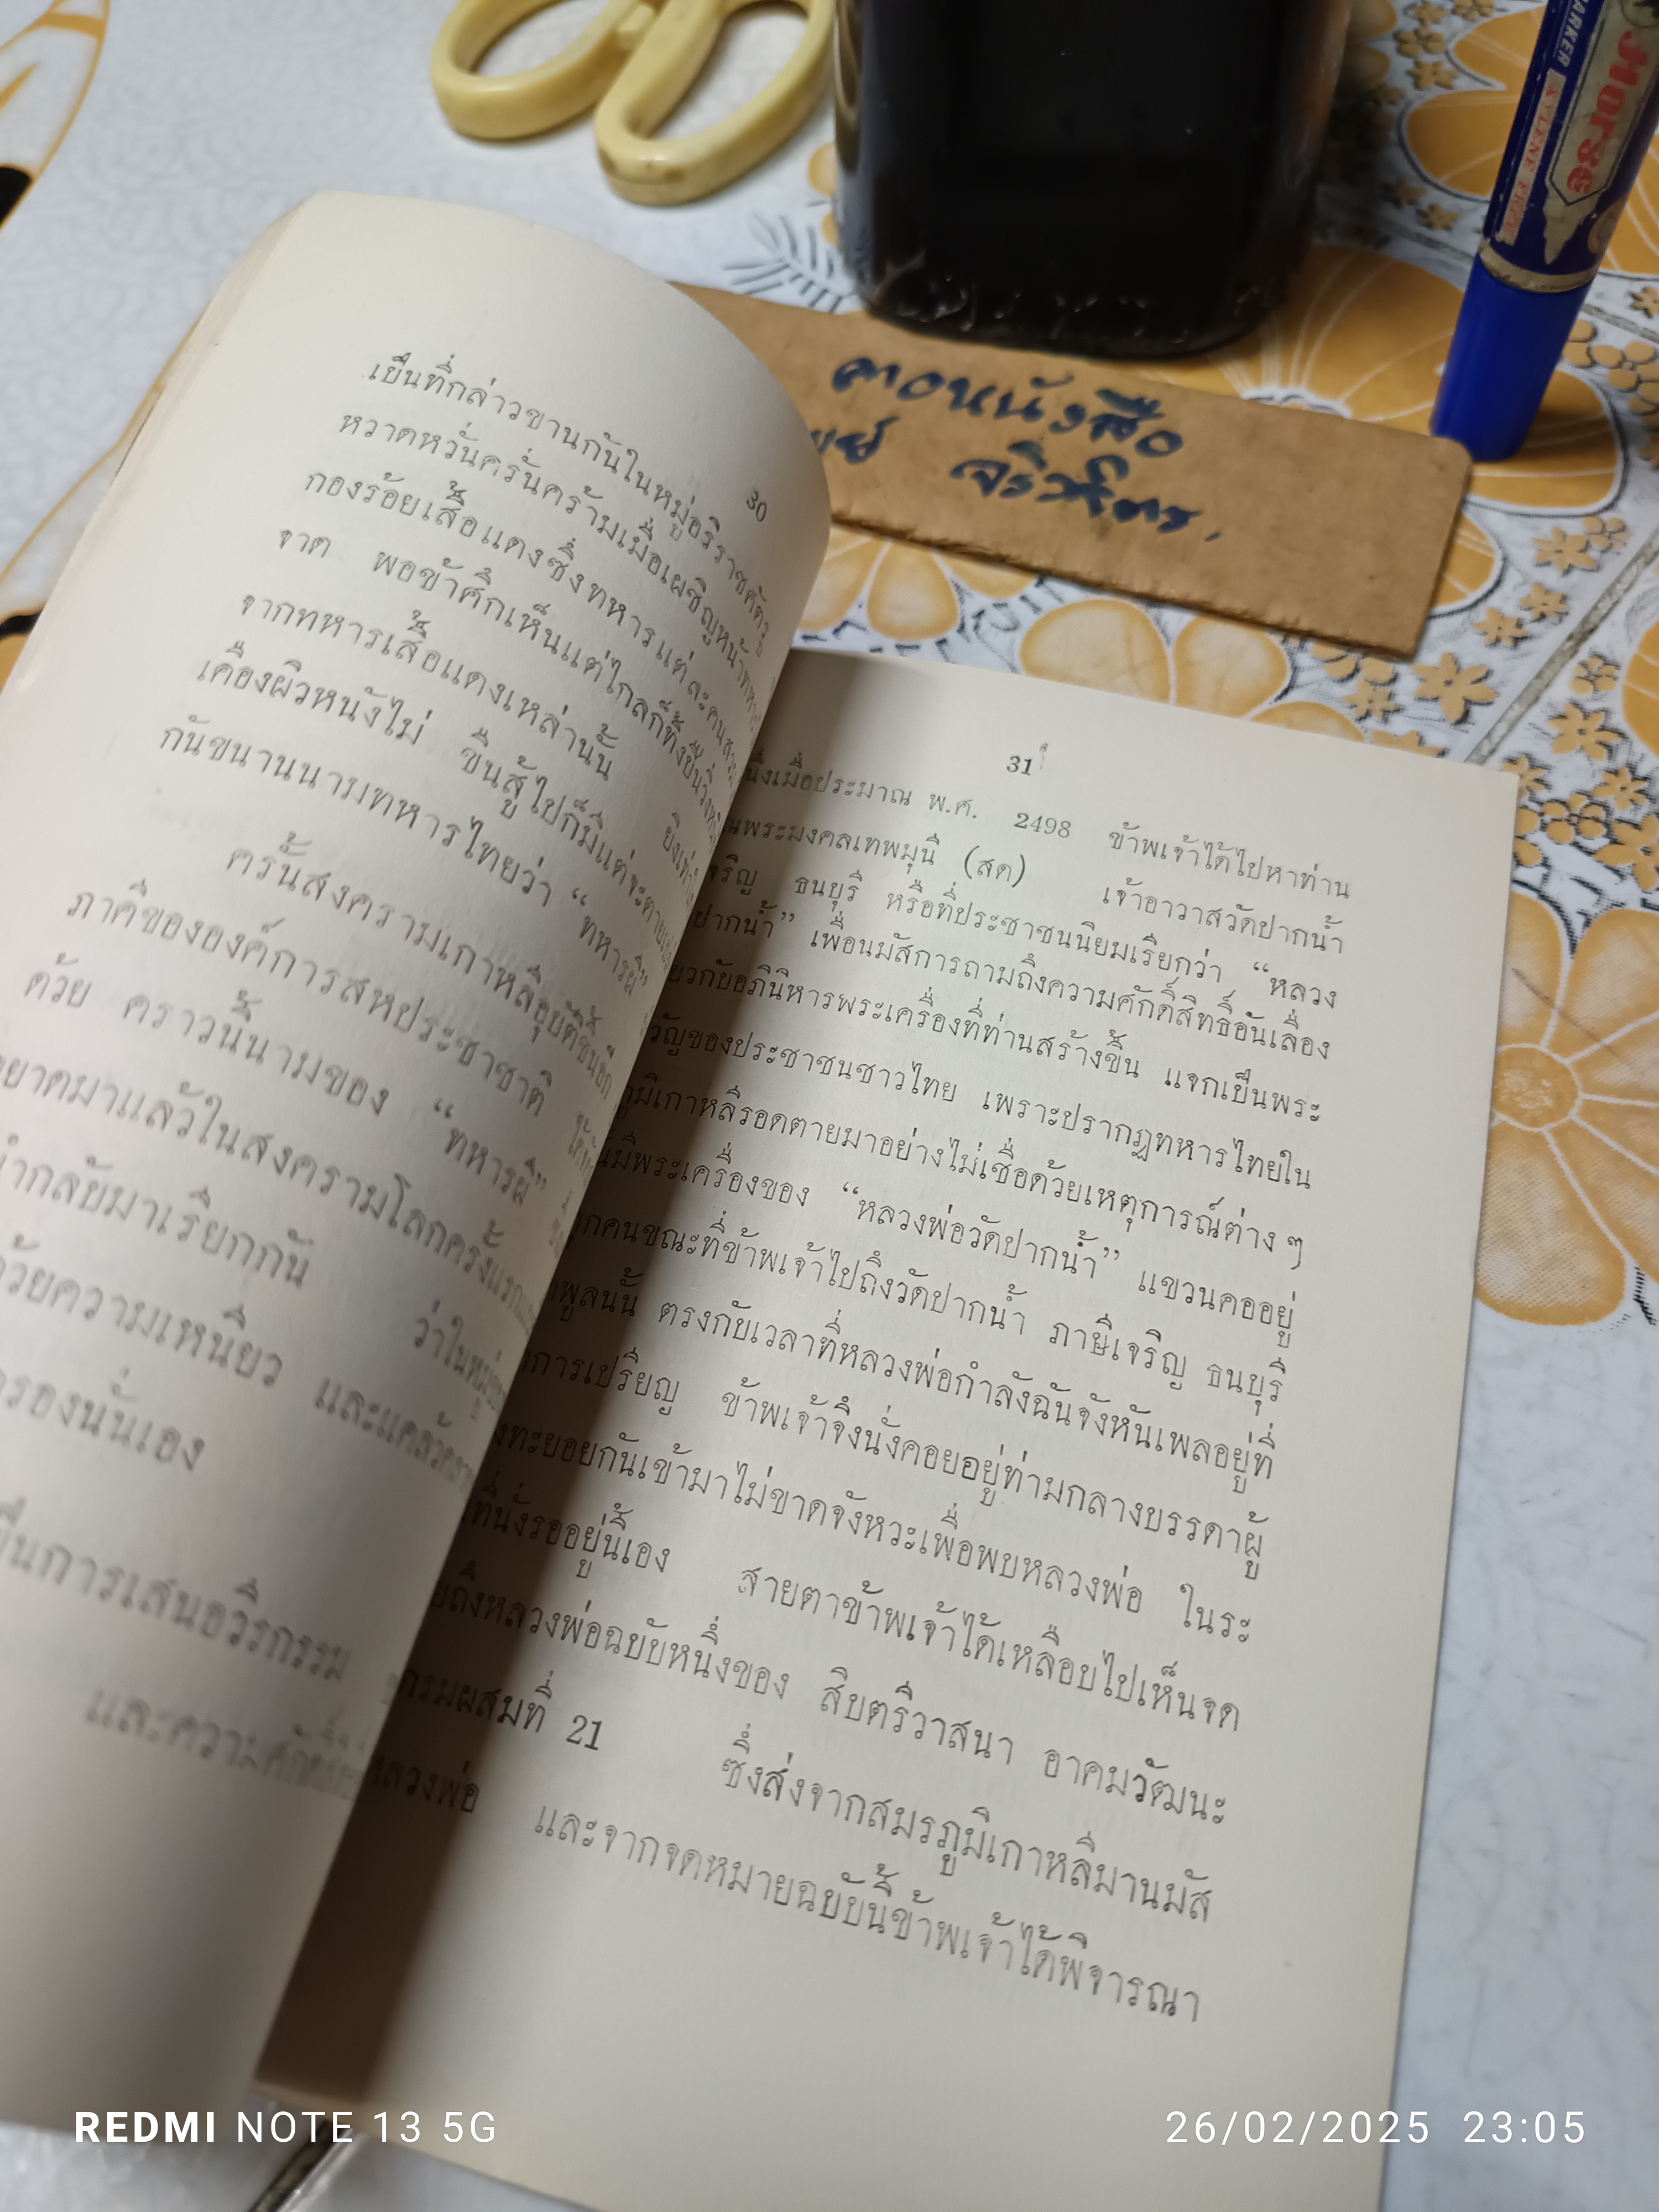 Horse
MARKER
XYLENE FREE
คาอหนังสือ
30
เป็นที่กล่าวขานกันในหมู่อริราชศัตรู
หวาดหวั่นครั่นคร้ามเมื่อเผชิญหน้าทหาร
กองร้อยเสื้อแดงซึ่งทหารแต่ละคนสวม
จาด พอข้าศึกเห็นแต่ไกลก็ทิ้งปืนวิ่งหนี
จากทหารเสื้อแดงเหล่านั้น ยิงเท่าใ
เคืองผิวหนังไม่ ขืนสู้ไปก็มีแต่จะตายเ
กันขนานนามทหารไทยว่า “ทหารผี”
ครั้นสงครามเกาหลีอุบัติขึ้นอีก
ภาคีขององค์การสหประชาชาติ
ด้วย คราวนี้นามของ “ทหารผี”
ขยาดมาแล้วในสงครามโลกครั้งแรก
กลับมาเรียกกัน ว่าในหมู่
ด้วยความเหนียว และแคล้วคลาด
ครองนั่นเอง
เป็นการเสนอวีรกรรม
และความศักดิ์สิทธิ์
31
นึ่งเมื่อประมาณ พ.ศ. 2498 ข้าพเจ้าได้ไปหาท่าน
ณพระมงคลเทพมุนี (สด) เจ้าอาวาสวัดปากน้ำ
จริญ ธนบุรี หรือที่ประชาชนนิยมเรียกว่า “หลวง
ปากน้ำ” เพื่อนมัสการถามถึงความศักดิ์สิทธิ์อันเลื่อง
ยวกับอภินิหารพระเครื่องที่ท่านสร้างขึ้น แจกเป็นพระ
วัญของประชาชนชาวไทย เพราะปรากฏทหารไทยใน
ภูมิเกาหลีรอดตายมาอย่างไม่เชื่อด้วยเหตุการณ์ต่าง ๆ
มีพระเครื่องของ “หลวงพ่อวัดปากน้ำ” แขวนคออยู่
กคนขณะที่ข้าพเจ้าไปถึงวัดปากน้ำ ภาษีเจริญ ธนบุรี
พูลนนั้น ตรงกับเวลาที่หลวงพ่อกำลังฉันจังหันเพลอยู่ที่
การเปรียญ ข้าพเจ้าจึงนั่งคอยอยู่ท่ามกลางบรรดาผู้
งทะยอยกันเข้ามาไม่ขาดจังหวะเพื่อพบหลวงพ่อ ในระ
ที่นั่งรออยู่นี้เอง สายตาข้าพเจ้าได้เหลือบไปเห็นจด
ยถึงหลวงพ่อฉบับหนึ่งของ สิบตรีวาสนา อาคมวัฒนะ
กรมผสมที่ 21 ซึ่งส่งจากสมรภูมิเกาหลีมานมัส
หลวงพ่อ และจากจดหมายฉบับนี้ข้าพเจ้าได้พิจารณา
REDMI NOTE 13 5G
26/02/2025 23:05